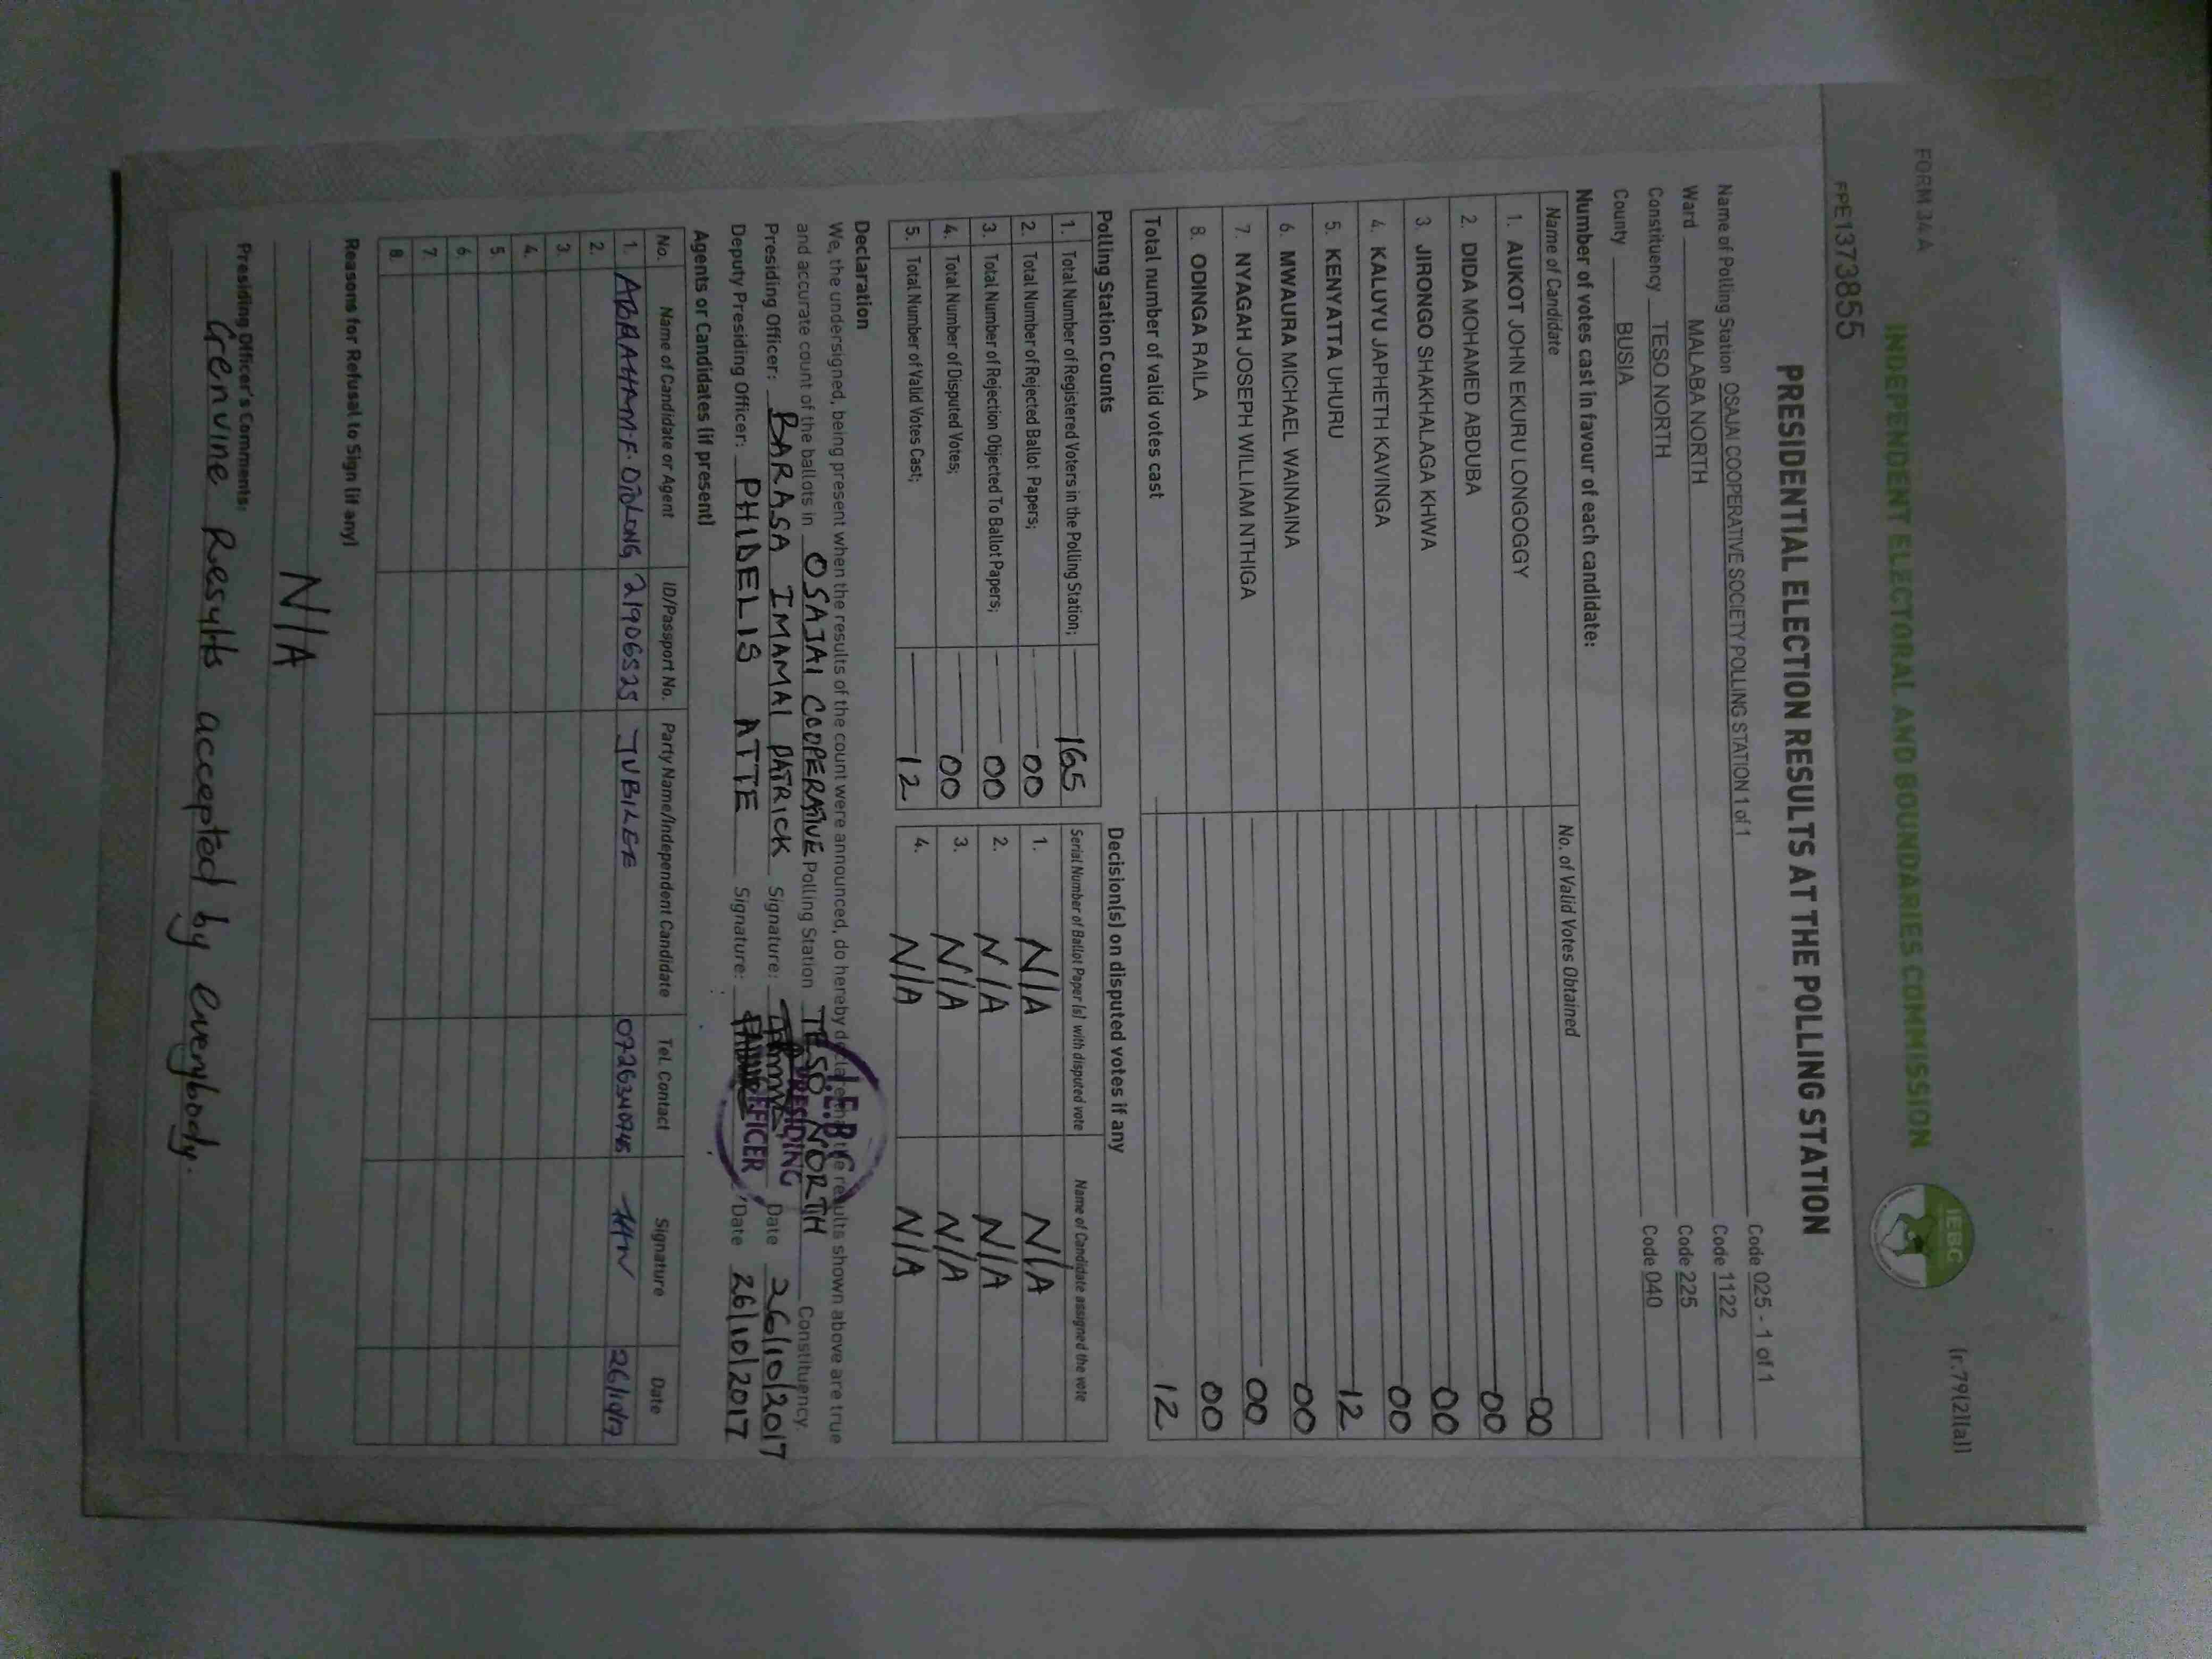 FORM 34 A
(r.79(2)(a))
INDEPENDENT ELECTORAL AND BOUNDARIES COMMISSION
IEBC
PPE1373855
PRESIDENTIAL ELECTION RESULTS AT THE POLLING STATION
Name of Polling Station OSAJAI COOPERATIVE SOCIETY POLLING STATION 1 of 1 Code 025 - 1 of 1
Ward MALABA NORTH Code 1122
Constituency TESO NORTH Code 225
County BUSIA Code 040
Number of votes cast in favour of each candidate:
Name of Candidate No. of Valid Votes Obtained
1. AUKOT JOHN EKURU LONGOGGY 00
2. DIDA MOHAMED ABDUBA 00
3. JIRONGO SHAKHALAGA KHWA 00
4. KALUYU JAPHETH KAVINGA 00
5. KENYATTA UHURU 12
6. MWAURA MICHAEL WAINAINA 00
7. NYAGAH JOSEPH WILLIAM NTHIGA 00
8. ODINGA RAILA 00
Total number of valid votes cast 12
Polling Station Counts
1. Total Number of Registered Voters in the Polling Station; 165
2. Total Number of Rejected Ballot Papers; 00
3. Total Number of Rejection Objected To Ballot Papers; 00
4. Total Number of Disputed Votes; 00
5. Total Number of Valid Votes Cast; 12
Decision(s) on disputed votes if any
Serial Number of Ballot Paper (s) with disputed vote Name of Candidate assigned the vote
1. N/A N/A
2. N/A N/A
3. N/A N/A
4. N/A N/A
Declaration
We, the undersigned, being present when the results of the count were announced, do hereby declare that the results shown above are true
and accurate count of the ballots in OSAJAI COOPERATIVE Polling Station TESO NORTH Constituency
Presiding Officer: BARASA IMAMAI PATRICK Signature: Date 26/10/2017
Deputy Presiding Officer: PHIDELIS ATTE Signature: Date 26/10/2017
I.E.B.C
PRESIDING
OFFICER
Agents or Candidates (if present)
No. Name of Candidate or Agent ID/Passport No. Party Name/Independent Candidate Tel. Contact Signature Date
1. ABRAHAM F. 21906525 JUBILEE 0726340945 26/10/17
2.
3.
4.
5.
6.
7.
8.
Reasons for Refusal to Sign (if any)
N/A
Presiding Officer's Comments:
Genuine Results accepted by everybody.